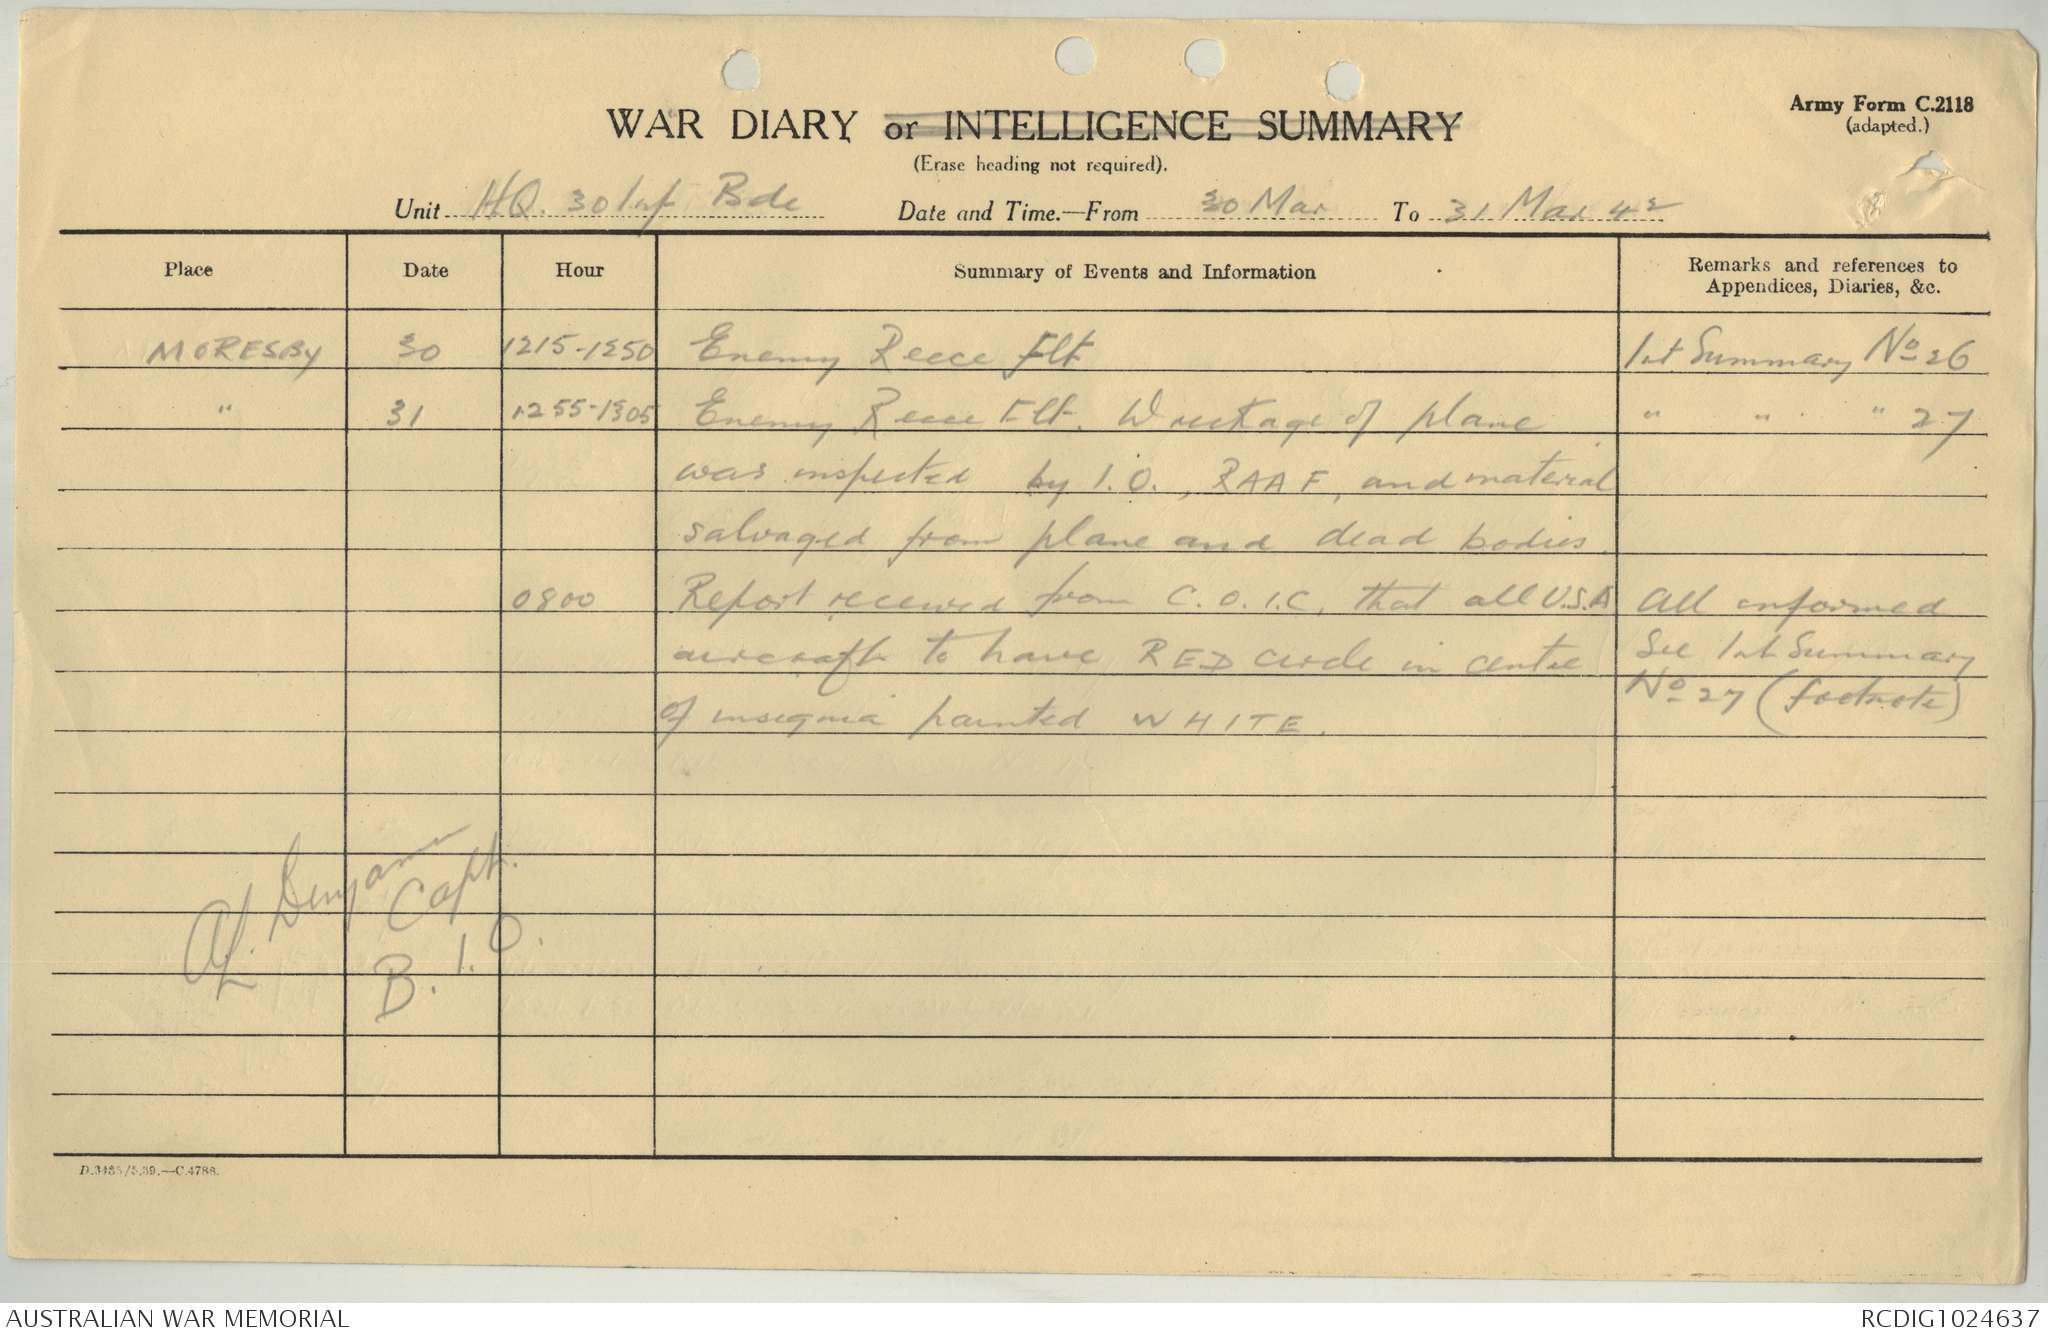 Army Form C.2118
(adapted.)
WAR DIARY or INTELLIGENCE SUMMARY
(Erase heading not required).
Unit HQ. 30 Inf Bde Date and Time.—From 30 Mar To 31 Mar 42
Place Date Hour Summary of Events and Information Remarks and references to
Appendices, Diaries, &c.
MORESBY 30 1215-1250 Enemy Recce Flt Int Summary No 26
" 31 1255-1305 Enemy Recce Flt. Wreckage of plane " " " 27
was inspected by I.O., RAAF, and material
salvaged from plane and dead bodies.
0800 Report received from C.O.I.C. that all U.S.A All informed
aircraft to have RED circle in centre See Int Summary
of insignia painted WHITE. No 27 (footnote)
Capt.
B.I.O.
D.3485/5.39.—C.4788.
AUSTRALIAN WAR MEMORIAL RCDIG1024637